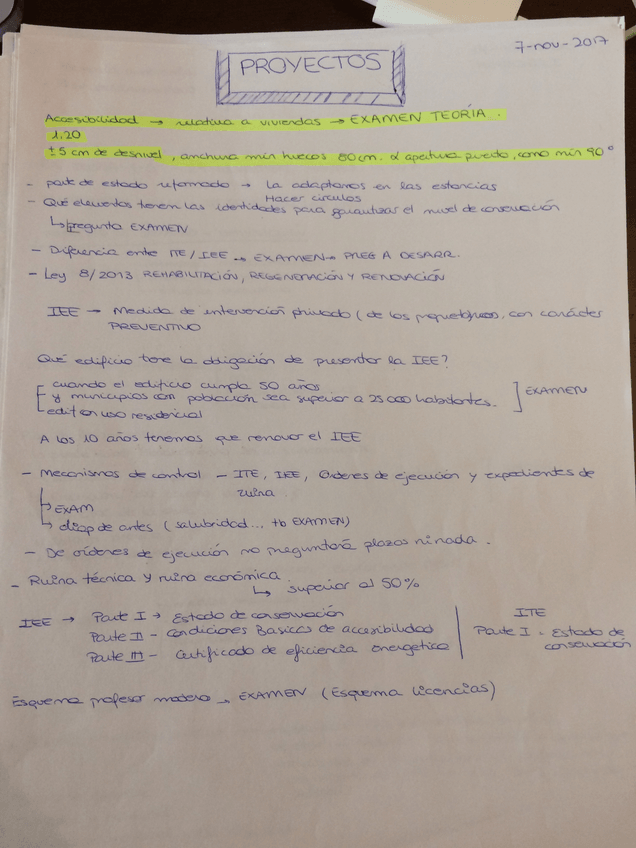 7-nov-2017
PROYECTOS
Accesibilidad → relativa a viviendas → EXAMEN TEORÍA.
1,20
±5 cm de desnivel, anchura min huecos 80cm. α apertura puerta, como min 90°
- parte de estado reformado → La adaptamos en las estancias
Hacer círculos
- Qué elementos tienen las identidades para garantizar el nivel de conservación
↳ Pregunta EXAMEN
- Diferencia entre ITE/IEE → EXAMEN → PREG A DESARR.
- Ley 8/2013 REHABILITACIÓN, REGENERACIÓN Y RENOVACIÓN
IEE → Medida de intervención privado (de los propietarios, con carácter
PREVENTIVO
Qué edificio tiene la obligación de presentar la IEE?
cuando el edificio cumpla 50 años
y municipios con población sea superior a 25000 habitantes. ] EXAMEN
edif en uso residencial
A los 10 años tenemos que renovar el IEE
- Mecanismos de control - ITE, IEE, Ordenes de ejecución y expedientes de
ruina
↳ EXAM
↳ diap de antes (salubridad... tb EXAMEN)
- De órdenes de ejecución no preguntará plazos ni nada.
- Ruina técnica y ruina económica
↳ superior al 50%
IEE → Parte I → Estado de conservación
Parte II - Condiciones Basicas de accesibilidad
Parte III - Certificado de eficiencia energetica
ITE
Parte I - Estado de
conservación
Esquema profesor modelo → EXAMEN (Esquema licencias)